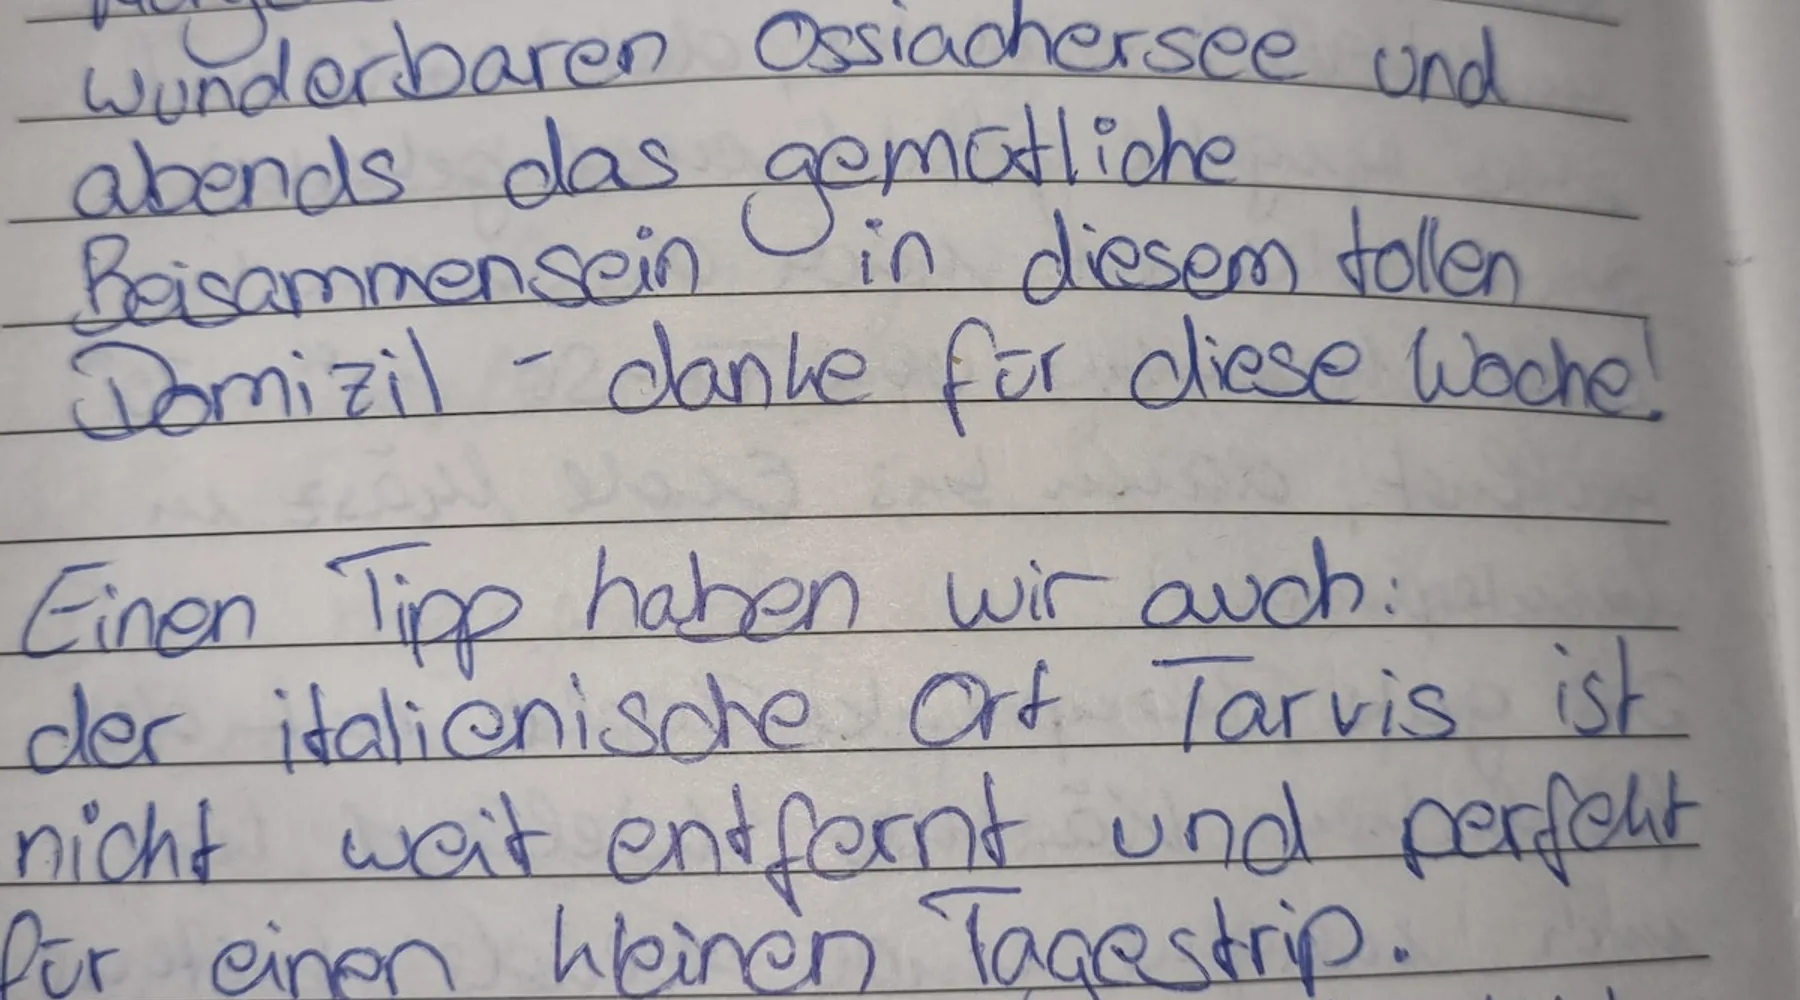 wunderbaren Ossiachersee und
abends das gemütliche
Beisammensein in diesem tollen
Domizil - danke für diese Woche!
Einen Tipp haben wir auch:
der italienische Ort Tarvis ist
nicht weit entfernt und perfekt
für einen kleinen Tagestrip.